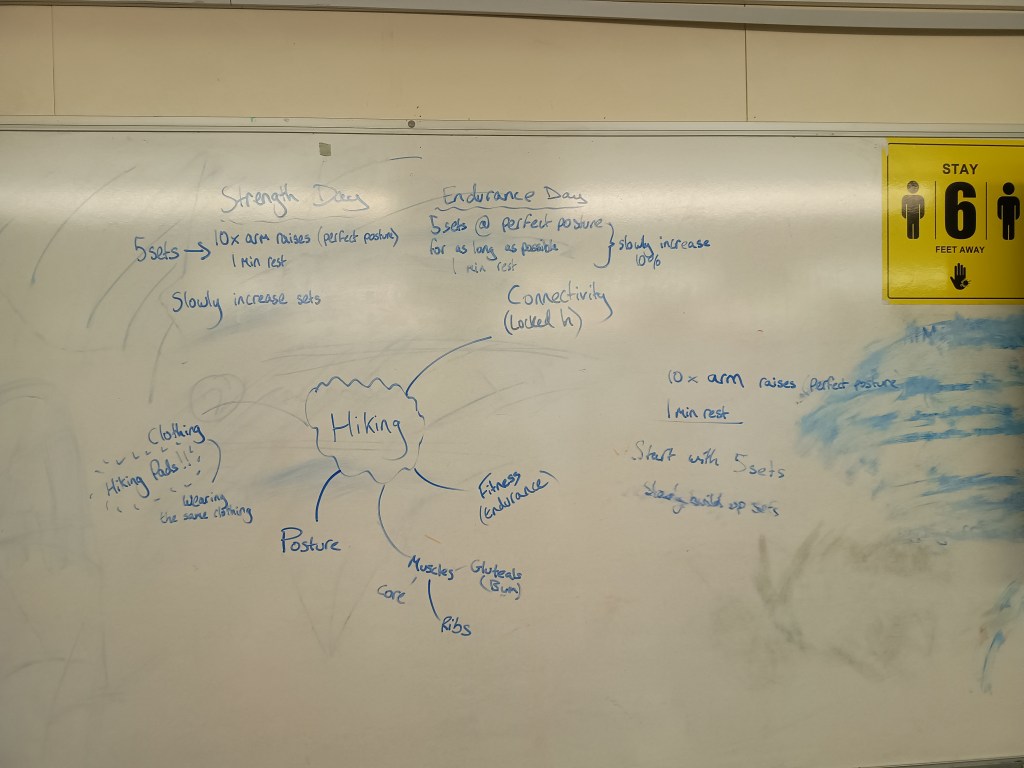 Strength Day
5 sets → 10x arm raises (perfect posture)
1 min rest
Slowly increase sets
Endurance Day
5 sets @ perfect posture
for as long as possible
1 min rest
slowly increase
10%
Connectivity
(Locked In)
Hiking
Clothing
Hiking Pads!!
Wearing
the same clothing
Posture
Fitness
(Endurance)
Muscles
Gluteals
(Bum)
Core
Ribs
10x arm raises perfect posture
1 min rest
Start with 5 sets
Slowly build up sets
STAY
6
FEET AWAY